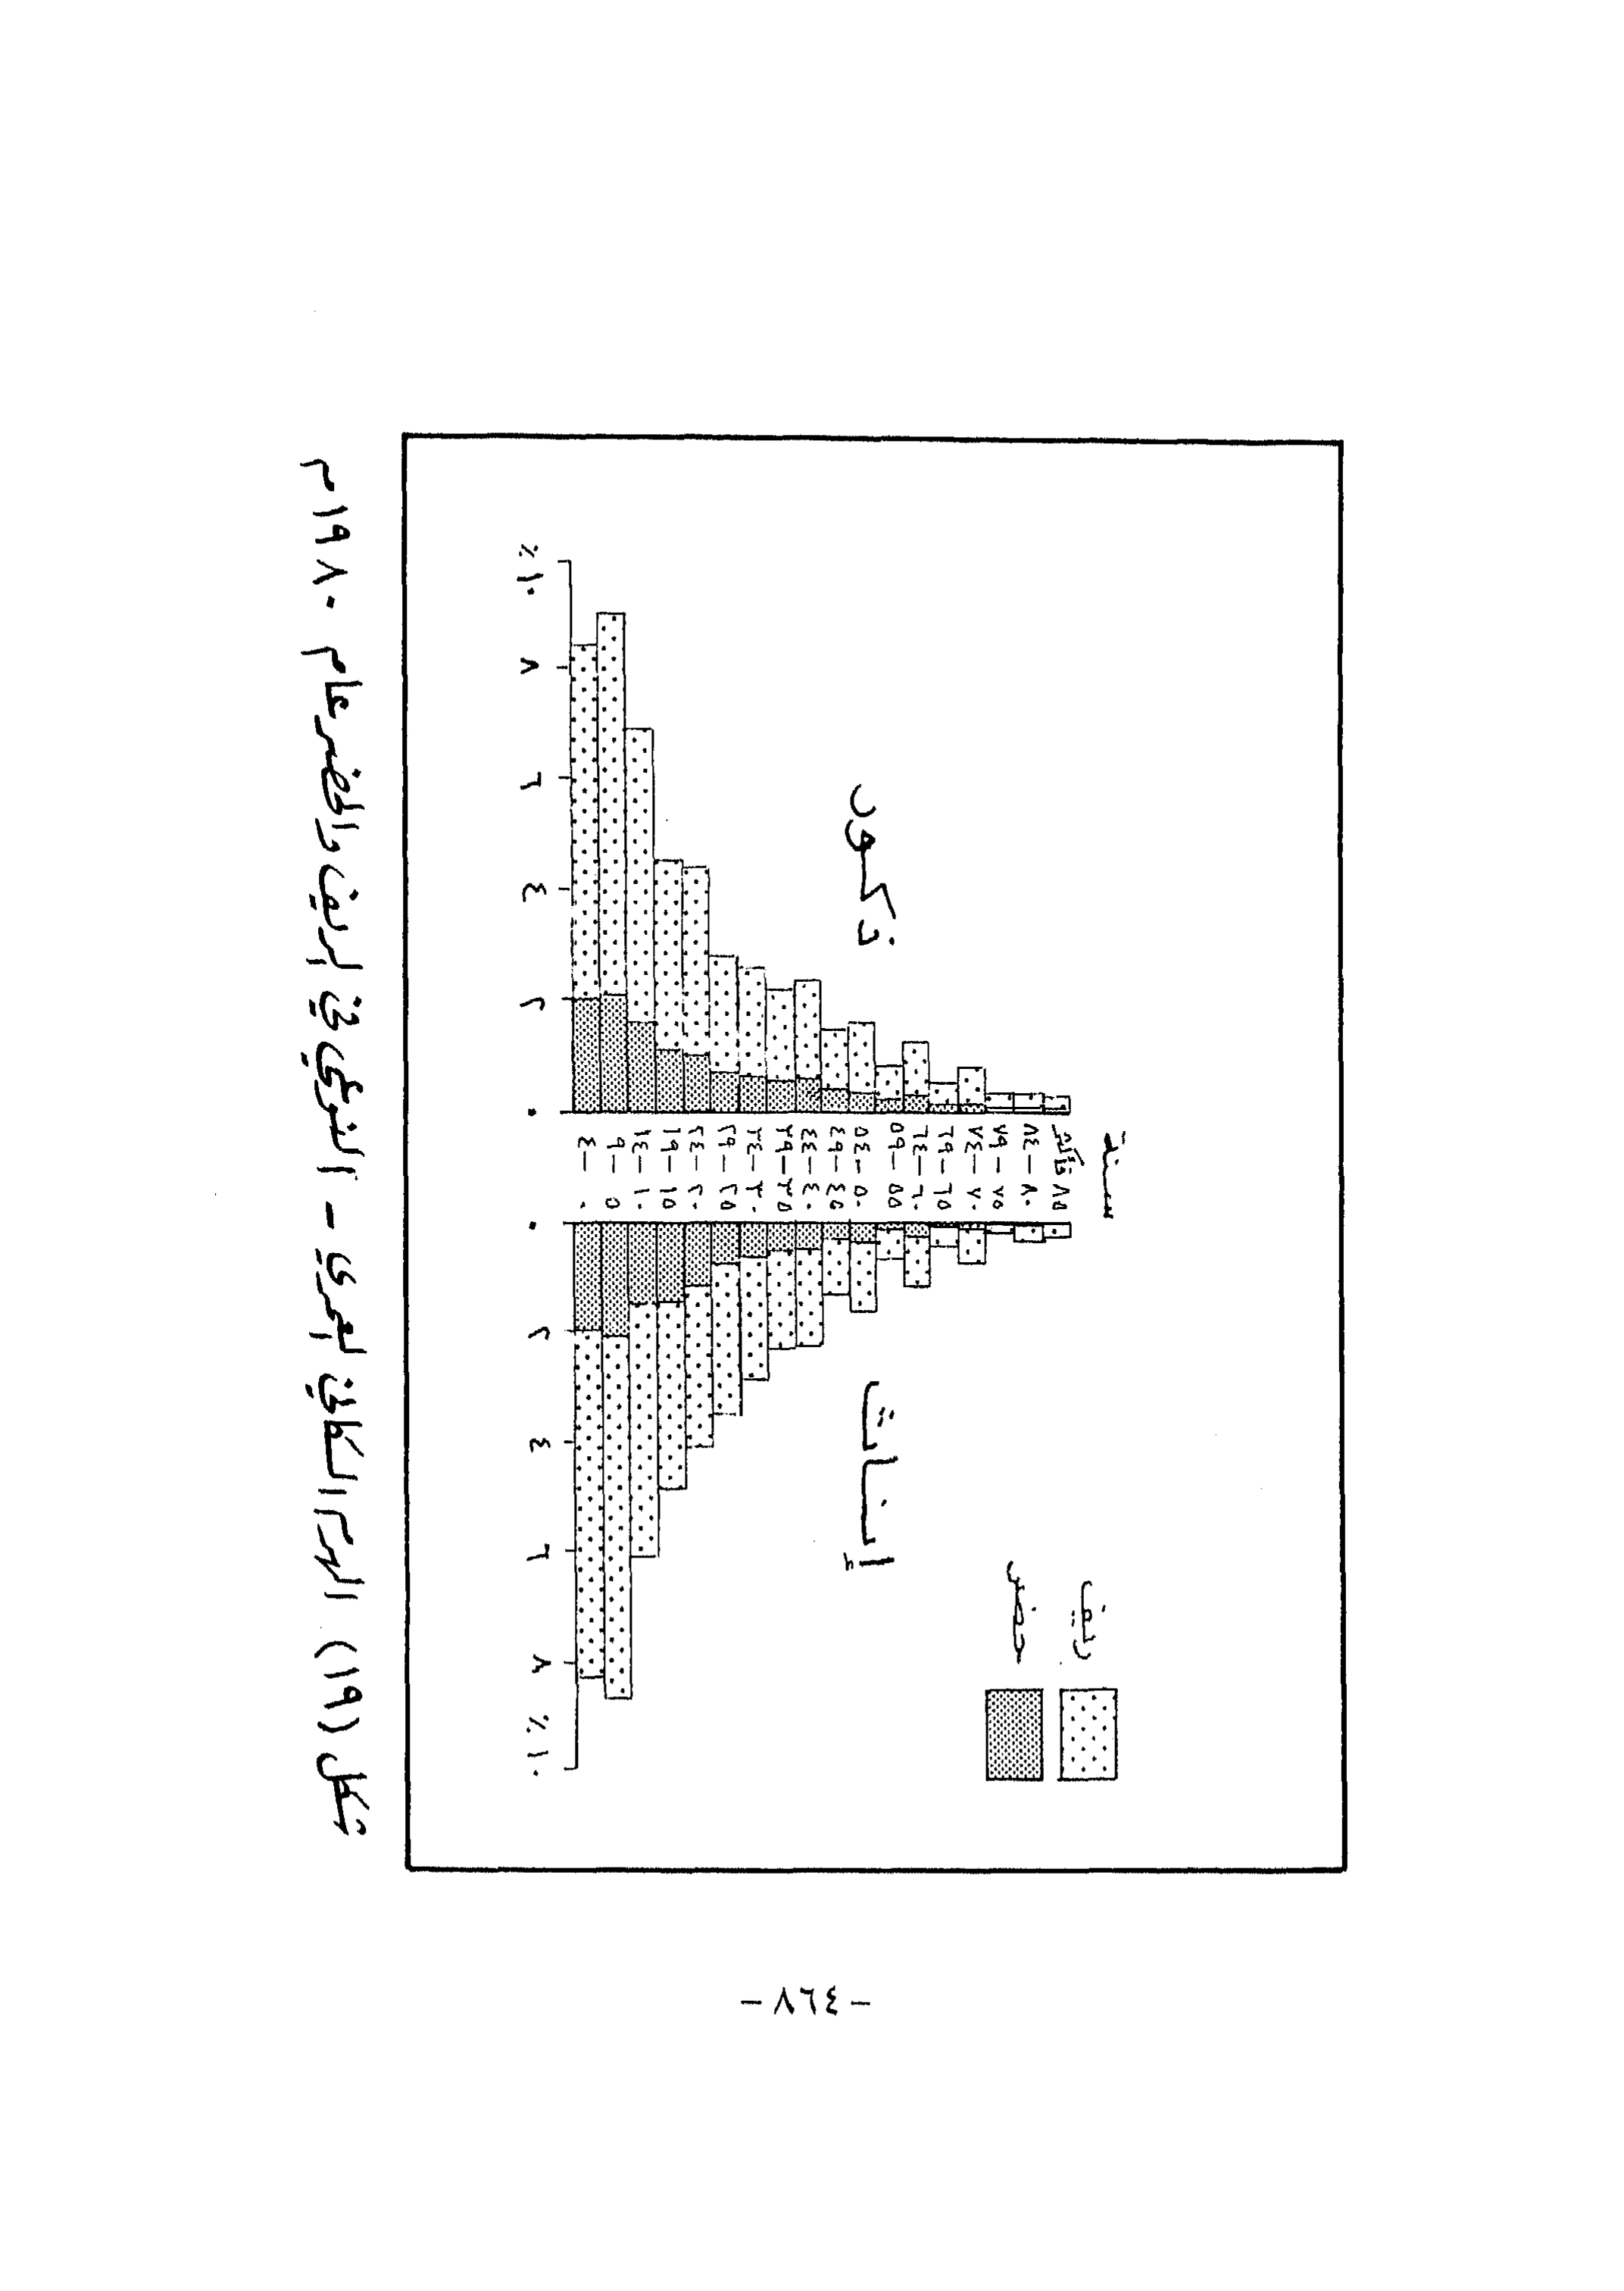 سنة
٨٥ فأكثر
٨٠ — ٨٤
٧٥ — ٧٩
٧٠ — ٧٤
٦٥ — ٦٩
٦٠ — ٦٤
٥٥ — ٥٩
٥٠ — ٥٤
٤٥ — ٤٩
٤٠ — ٤٤
٣٥ — ٣٩
٣٠ — ٣٤
٢٥ — ٢٩
٢٠ — ٢٤
١٥ — ١٩
١٠ — ١٤
٥ — ٩
٠ — ٤
ريف
حضر
إناث
ذكور
١٠٪ ٨ ٦ ٤ ٢ ٠ ٠ ٢ ٤ ٦ ٨ ١٠٪
شكل (١٩) الهرم السكاني العمري - النوعي في الريف والحضر عام ١٩٨٠م
- ٤٦٧ -